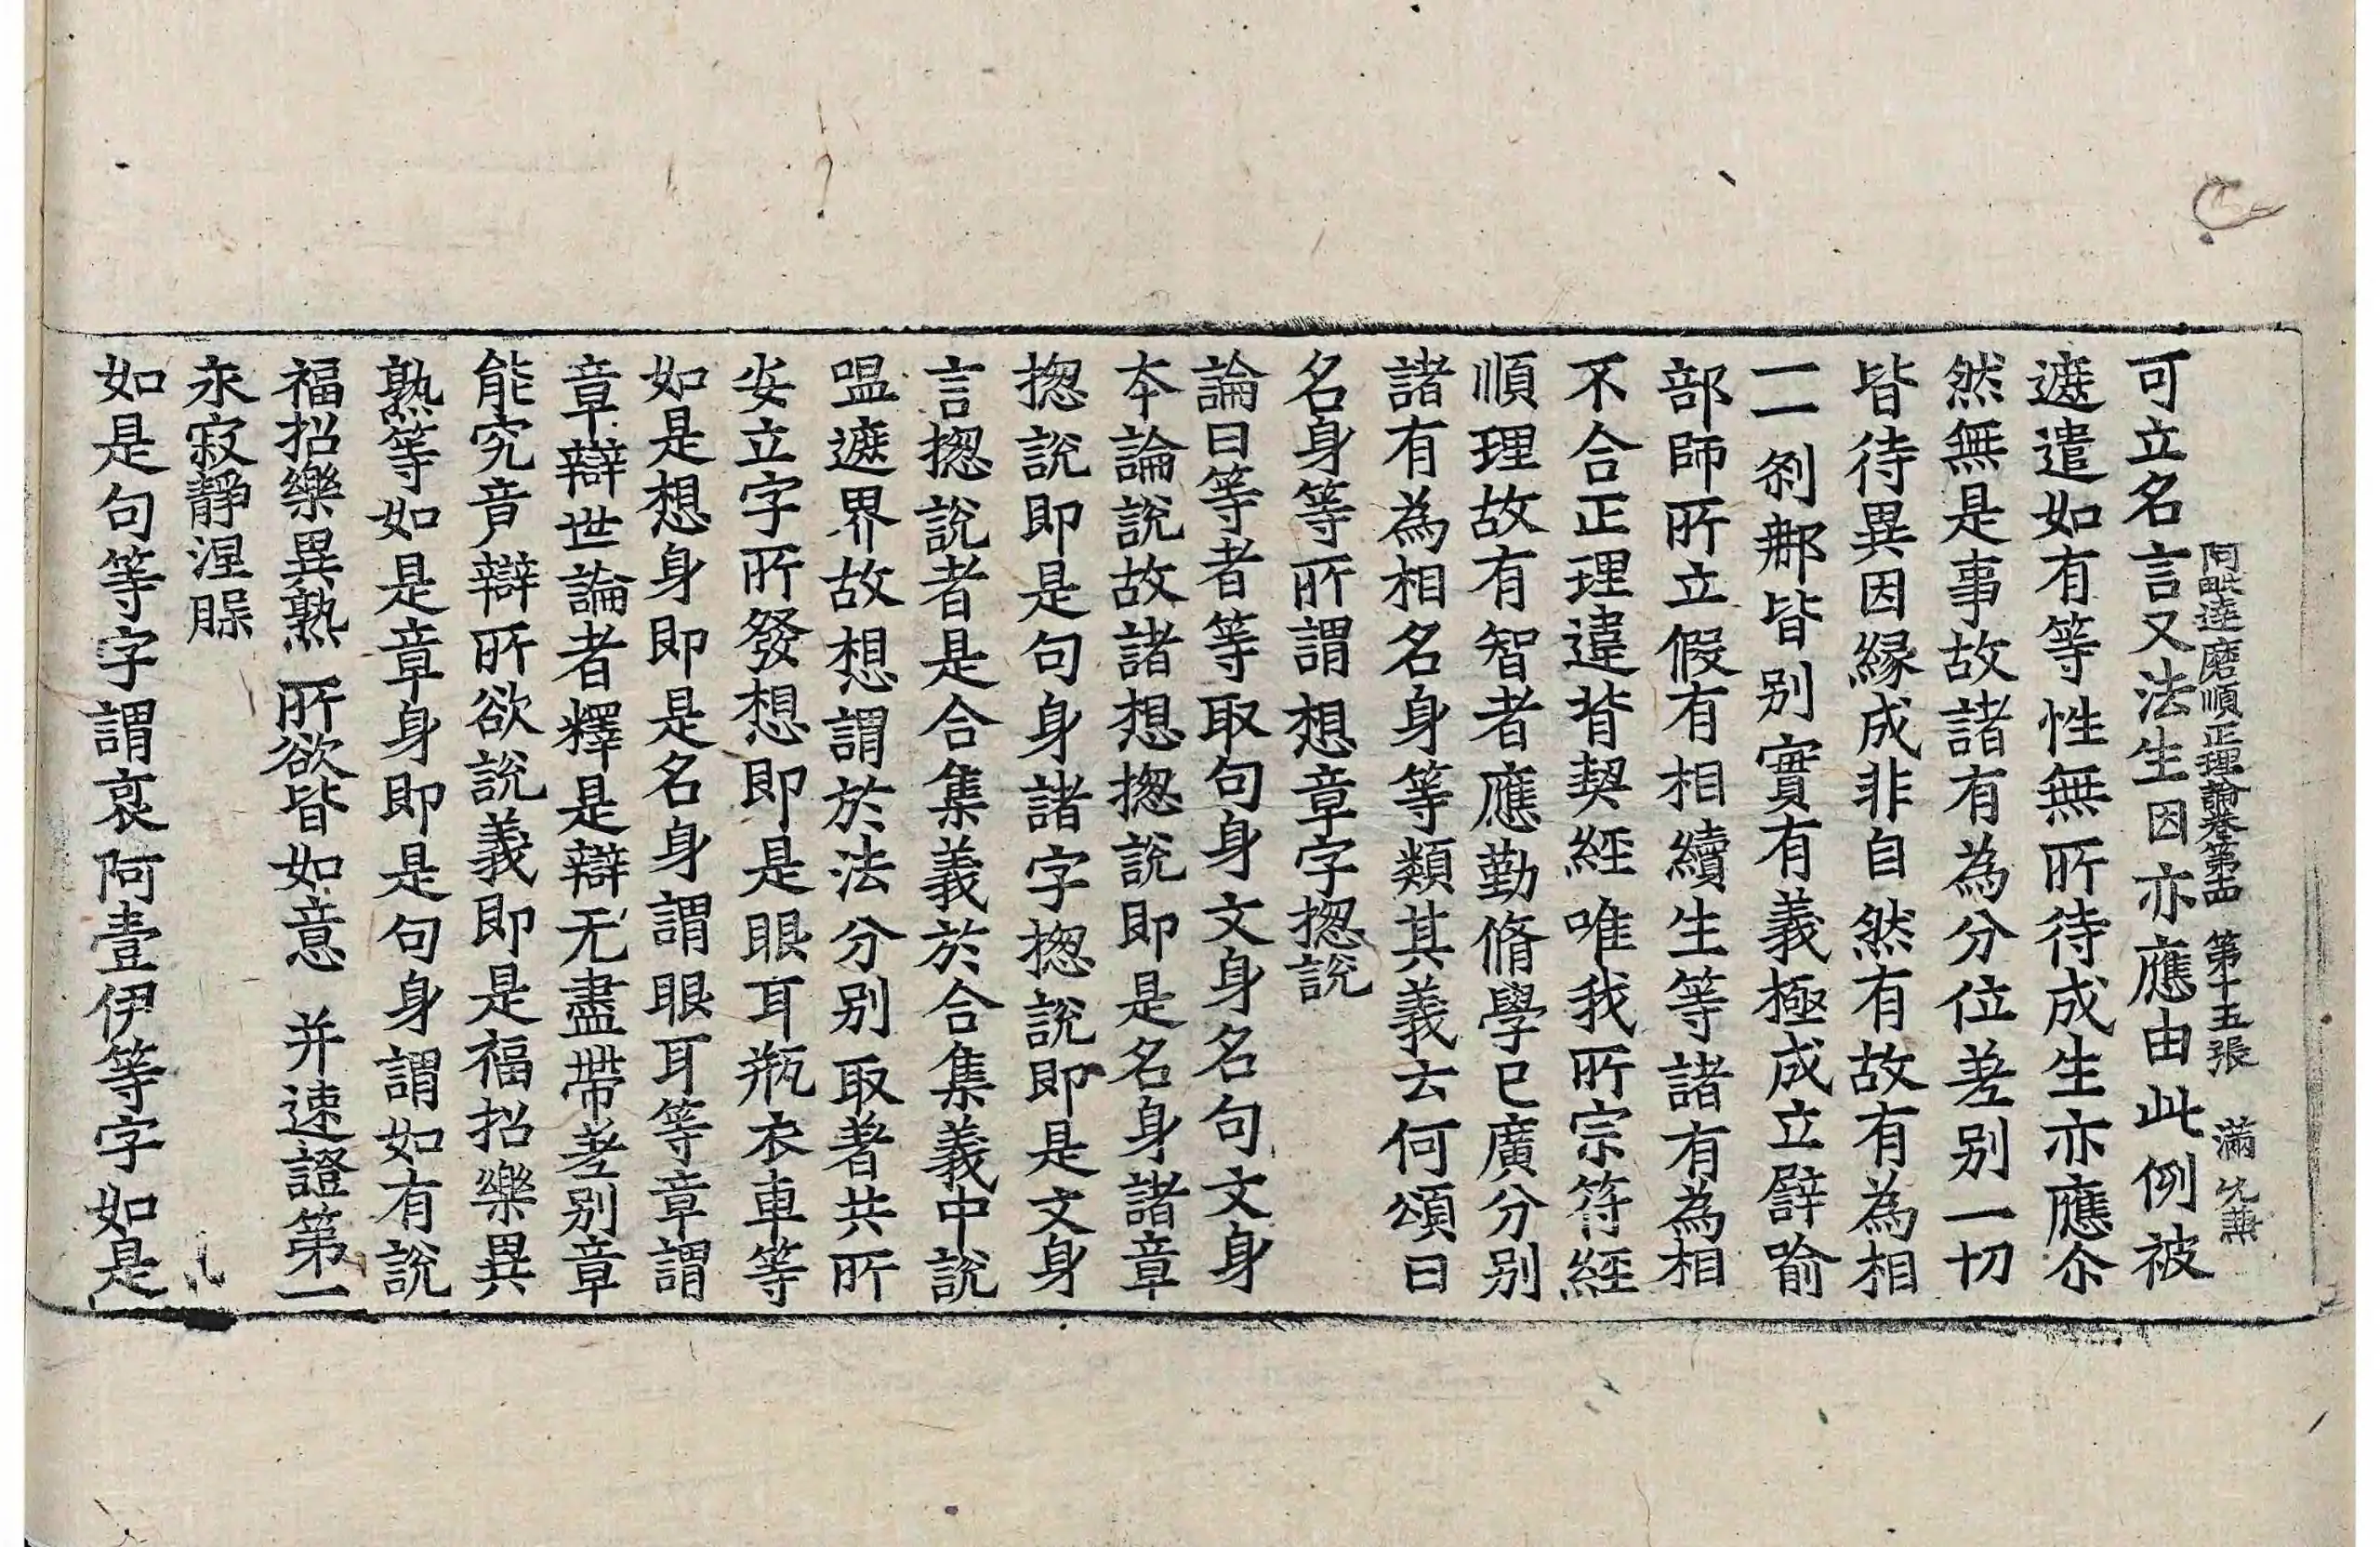 阿毗達磨順正理論卷第十四 第十五張 滿
可立名言又法生因亦應由此例被
遮遣如有等性無所待成生亦應尒
然無是事故諸有為分位差别一切
皆待異因緣成非自然有故有為相
一一剎那皆别實有義極成立譬喻
部師所立假有相續生等諸有為相
不合正理違背契經唯我所宗符經
順理故有智者應勤脩學已廣分别
諸有為相名身等類其義云何頌曰
名身等所謂 想章字揔說
論曰等者等取句身文身名句文身
本論說故諸想揔說即是名身諸章
揔說即是句身諸字揔說即是文身
言揔說者是合集義於合集義中說
嗢遮界故想謂於法分别取著共所
安立字所發想即是眼耳瓶衣車等
如是想身即是名身謂眼耳等章謂
章辯世論者釋是辯无盡帶差别章
能究竟辯所欲說義即是福招樂異
熟等如是章身即是句身謂如有說
福招樂異熟 所欲皆如意 并速證第一
永寂靜涅槃
如是句等字謂裒阿壹伊等字如是